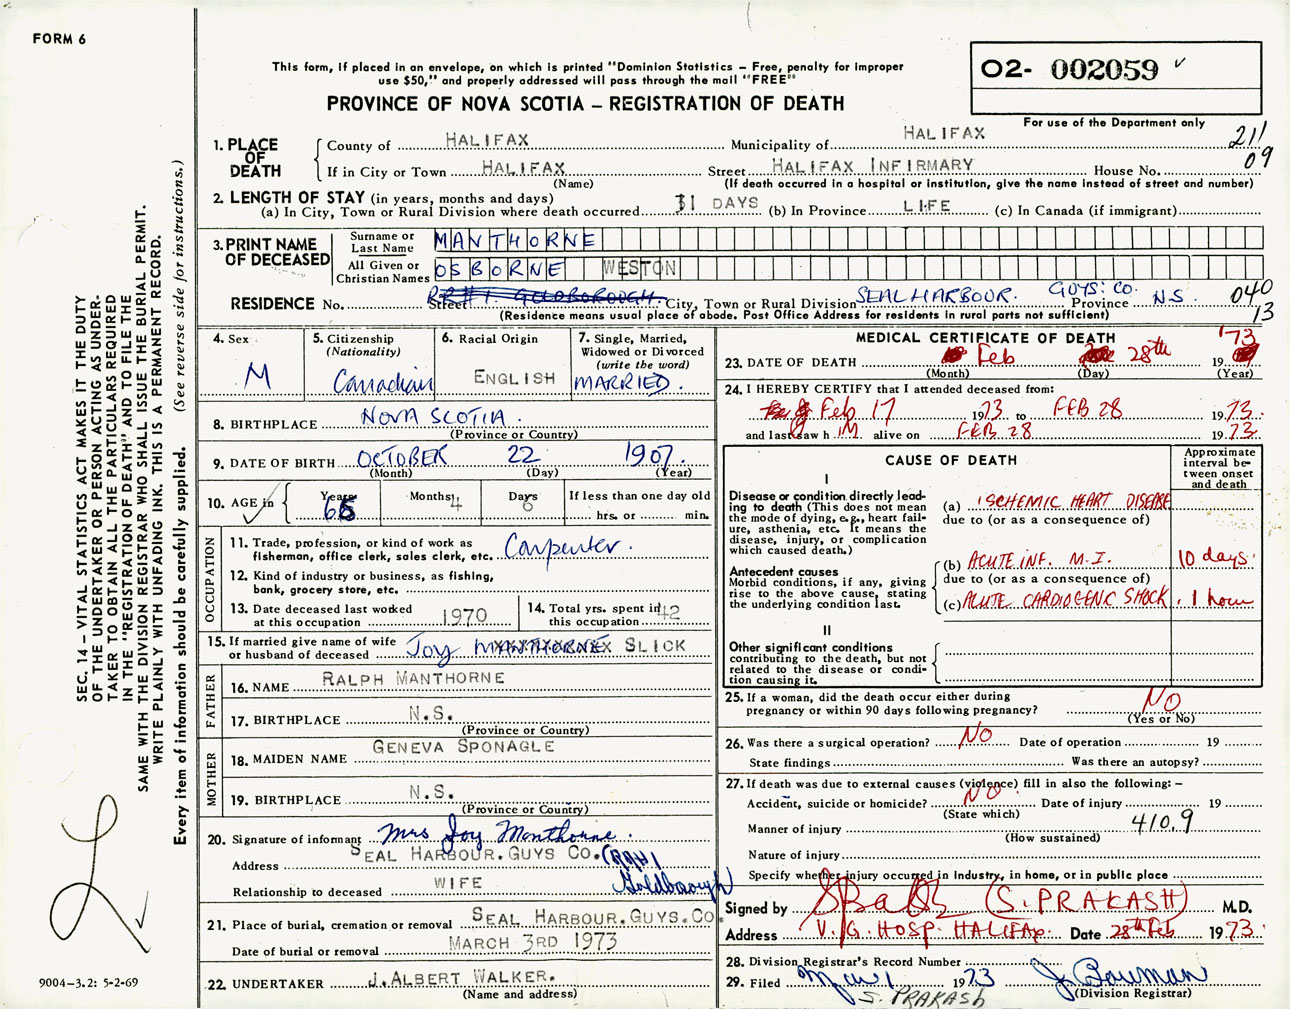 FORM 6
This form, if placed in an envelope, on which is printed "Dominion Statistics – Free, penalty for improper
use $50," and properly addressed will pass through the mail "FREE"
PROVINCE OF NOVA SCOTIA – REGISTRATION OF DEATH
O2- 002059
For use of the Department only
211
09
1. PLACE OF DEATH
County of HALIFAX Municipality of HALIFAX
If in City or Town HALIFAX Street HALIFAX INFIRMARY House No.
(Name) (If death occurred in a hospital or institution, give the name instead of street and number)
2. LENGTH OF STAY (in years, months and days)
(a) In City, Town or Rural Division where death occurred 31 DAYS (b) In Province LIFE (c) In Canada (if immigrant)
3. PRINT NAME OF DECEASED
Surname or Last Name MANTHORNE
All Given or Christian Names OSBORNE WESTON
RESIDENCE No. RR#1. GOLDBOROUGH Street City, Town or Rural Division SEAL HARBOUR. GUYS. CO. Province N.S. 040
13
(Residence means usual place of abode. Post Office Address for residents in rural parts not sufficient)
4. Sex M
5. Citizenship (Nationality) Canadian
6. Racial Origin ENGLISH
7. Single, Married, Widowed or Divorced (write the word) MARRIED.
8. BIRTHPLACE NOVA SCOTIA.
(Province or Country)
9. DATE OF BIRTH OCTOBER 22 1907.
(Month) (Day) (Year)
10. AGE in Years 65 Months 4 Days 6 If less than one day old
hrs. or min.
OCCUPATION
11. Trade, profession, or kind of work as
fisherman, office clerk, sales clerk, etc. Carpenter.
12. Kind of industry or business, as fishing,
bank, grocery store, etc.
13. Date deceased last worked
at this occupation 1970
14. Total yrs. spent in
this occupation 42
15. If married give name of wife
or husband of deceased Joy MANTHORNE SLICK
FATHER
16. NAME RALPH MANTHORNE
17. BIRTHPLACE N.S.
(Province or Country)
MOTHER
18. MAIDEN NAME GENEVA SPONAGLE
19. BIRTHPLACE N.S.
(Province or Country)
20. Signature of informant Mrs Joy Manthorne.
Address SEAL HARBOUR. GUYS CO. (RR#1
Goldborough
Relationship to deceased WIFE
21. Place of burial, cremation or removal SEAL HARBOUR. GUYS. CO.
Date of burial or removal MARCH 3RD 1973
22. UNDERTAKER J. ALBERT WALKER.
(Name and address)
MEDICAL CERTIFICATE OF DEATH
23. DATE OF DEATH Feb 28th 19 '73
(Month) (Day) (Year)
24. I HEREBY CERTIFY that I attended deceased from:
Feb 17 1973 to FEB 28 1973.
and last saw h IM alive on FEB 28 1973
CAUSE OF DEATH
Approximate interval between onset and death
I
Disease or condition directly leading to death (This does not mean the mode of dying, e.g., heart failure, asthenia, etc. It means the disease, injury, or complication which caused death.)
(a) ISCHEMIC HEART DISEASE
due to (or as a consequence of)
Antecedent causes
Morbid conditions, if any, giving rise to the above cause, stating the underlying condition last.
(b) ACUTE INF. M.I. 10 days.
due to (or as a consequence of)
(c) ACUTE CARDIOGENIC SHOCK. 1 hour
II
Other significant conditions
contributing to the death, but not related to the disease or condition causing it.
25. If a woman, did the death occur either during
pregnancy or within 90 days following pregnancy? NO
(Yes or No)
26. Was there a surgical operation? NO Date of operation 19
State findings Was there an autopsy?
27. If death was due to external causes (violence) fill in also the following: –
Accident, suicide or homicide? NO. Date of injury 19
(State which)
Manner of injury 410.9
(How sustained)
Nature of injury
Specify whether injury occurred in Industry, in home, or in public place
Signed by (S. PRAKASH) M.D.
Address V.G. HOSP. HALIFAX. Date 28th Feb 1973.
28. Division Registrar's Record Number
29. Filed Mar 1 1973 J. Bowman
(Division Registrar)
S. PRAKASH
SEC. 14 – VITAL STATISTICS ACT MAKES IT THE DUTY
OF THE UNDERTAKER OR PERSON ACTING AS UNDER-
TAKER TO OBTAIN ALL THE PARTICULARS REQUIRED
IN THE "REGISTRATION OF DEATH" AND TO FILE THE
SAME WITH THE DIVISION REGISTRAR WHO SHALL ISSUE THE BURIAL PERMIT.
WRITE PLAINLY WITH UNFADING INK. THIS IS A PERMANENT RECORD.
Every item of information should be carefully supplied. (See reverse side for instructions.)
9004-3.2: 5-2-69